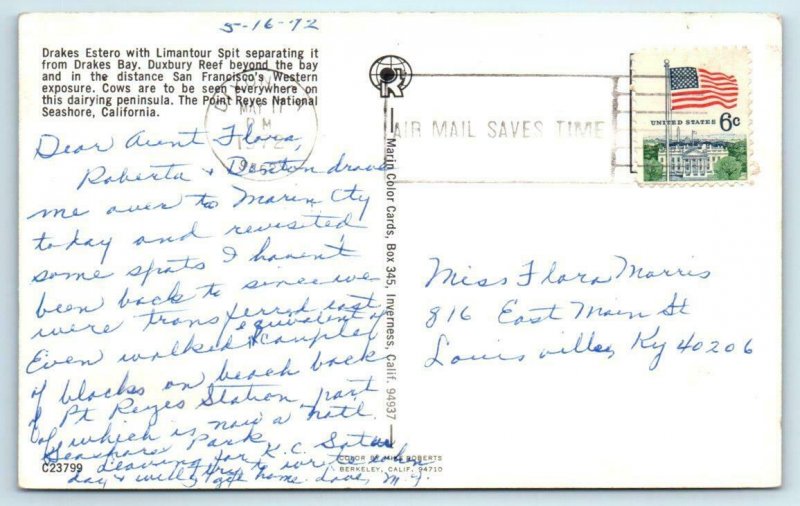 5-16-72
Drakes Estero with Limantour Spit separating it
from Drakes Bay. Duxbury Reef beyond the bay
and in the distance San Francisco's Western
exposure. Cows are to be seen everywhere on
this dairying peninsula. The Point Reyes National
Seashore, California.
MAY 17
PM
1972
AIR MAIL SAVES TIME
UNITED STATES 6c
Dear Aunt Flora,
Roberta + Denton drove
me over to Marin Cty
today and revisited
some spots I haven't
been back to since we
were transferred east.
equivalent of
Even walked a couple
of blocks on beach back
of Pt Reyes Station, part
of which is now a Natl.
Seashore Park.
Leaving for K.C. Satur
day + will try to write when
I get home. Love, M. J.
Miss Flora Morris
816 East Main St
Louisville, Ky 40206
Marin Color Cards, Box 345, Inverness, Calif. 94937
C23799
COLOR BY MIKE ROBERTS
BERKELEY, CALIF. 94710